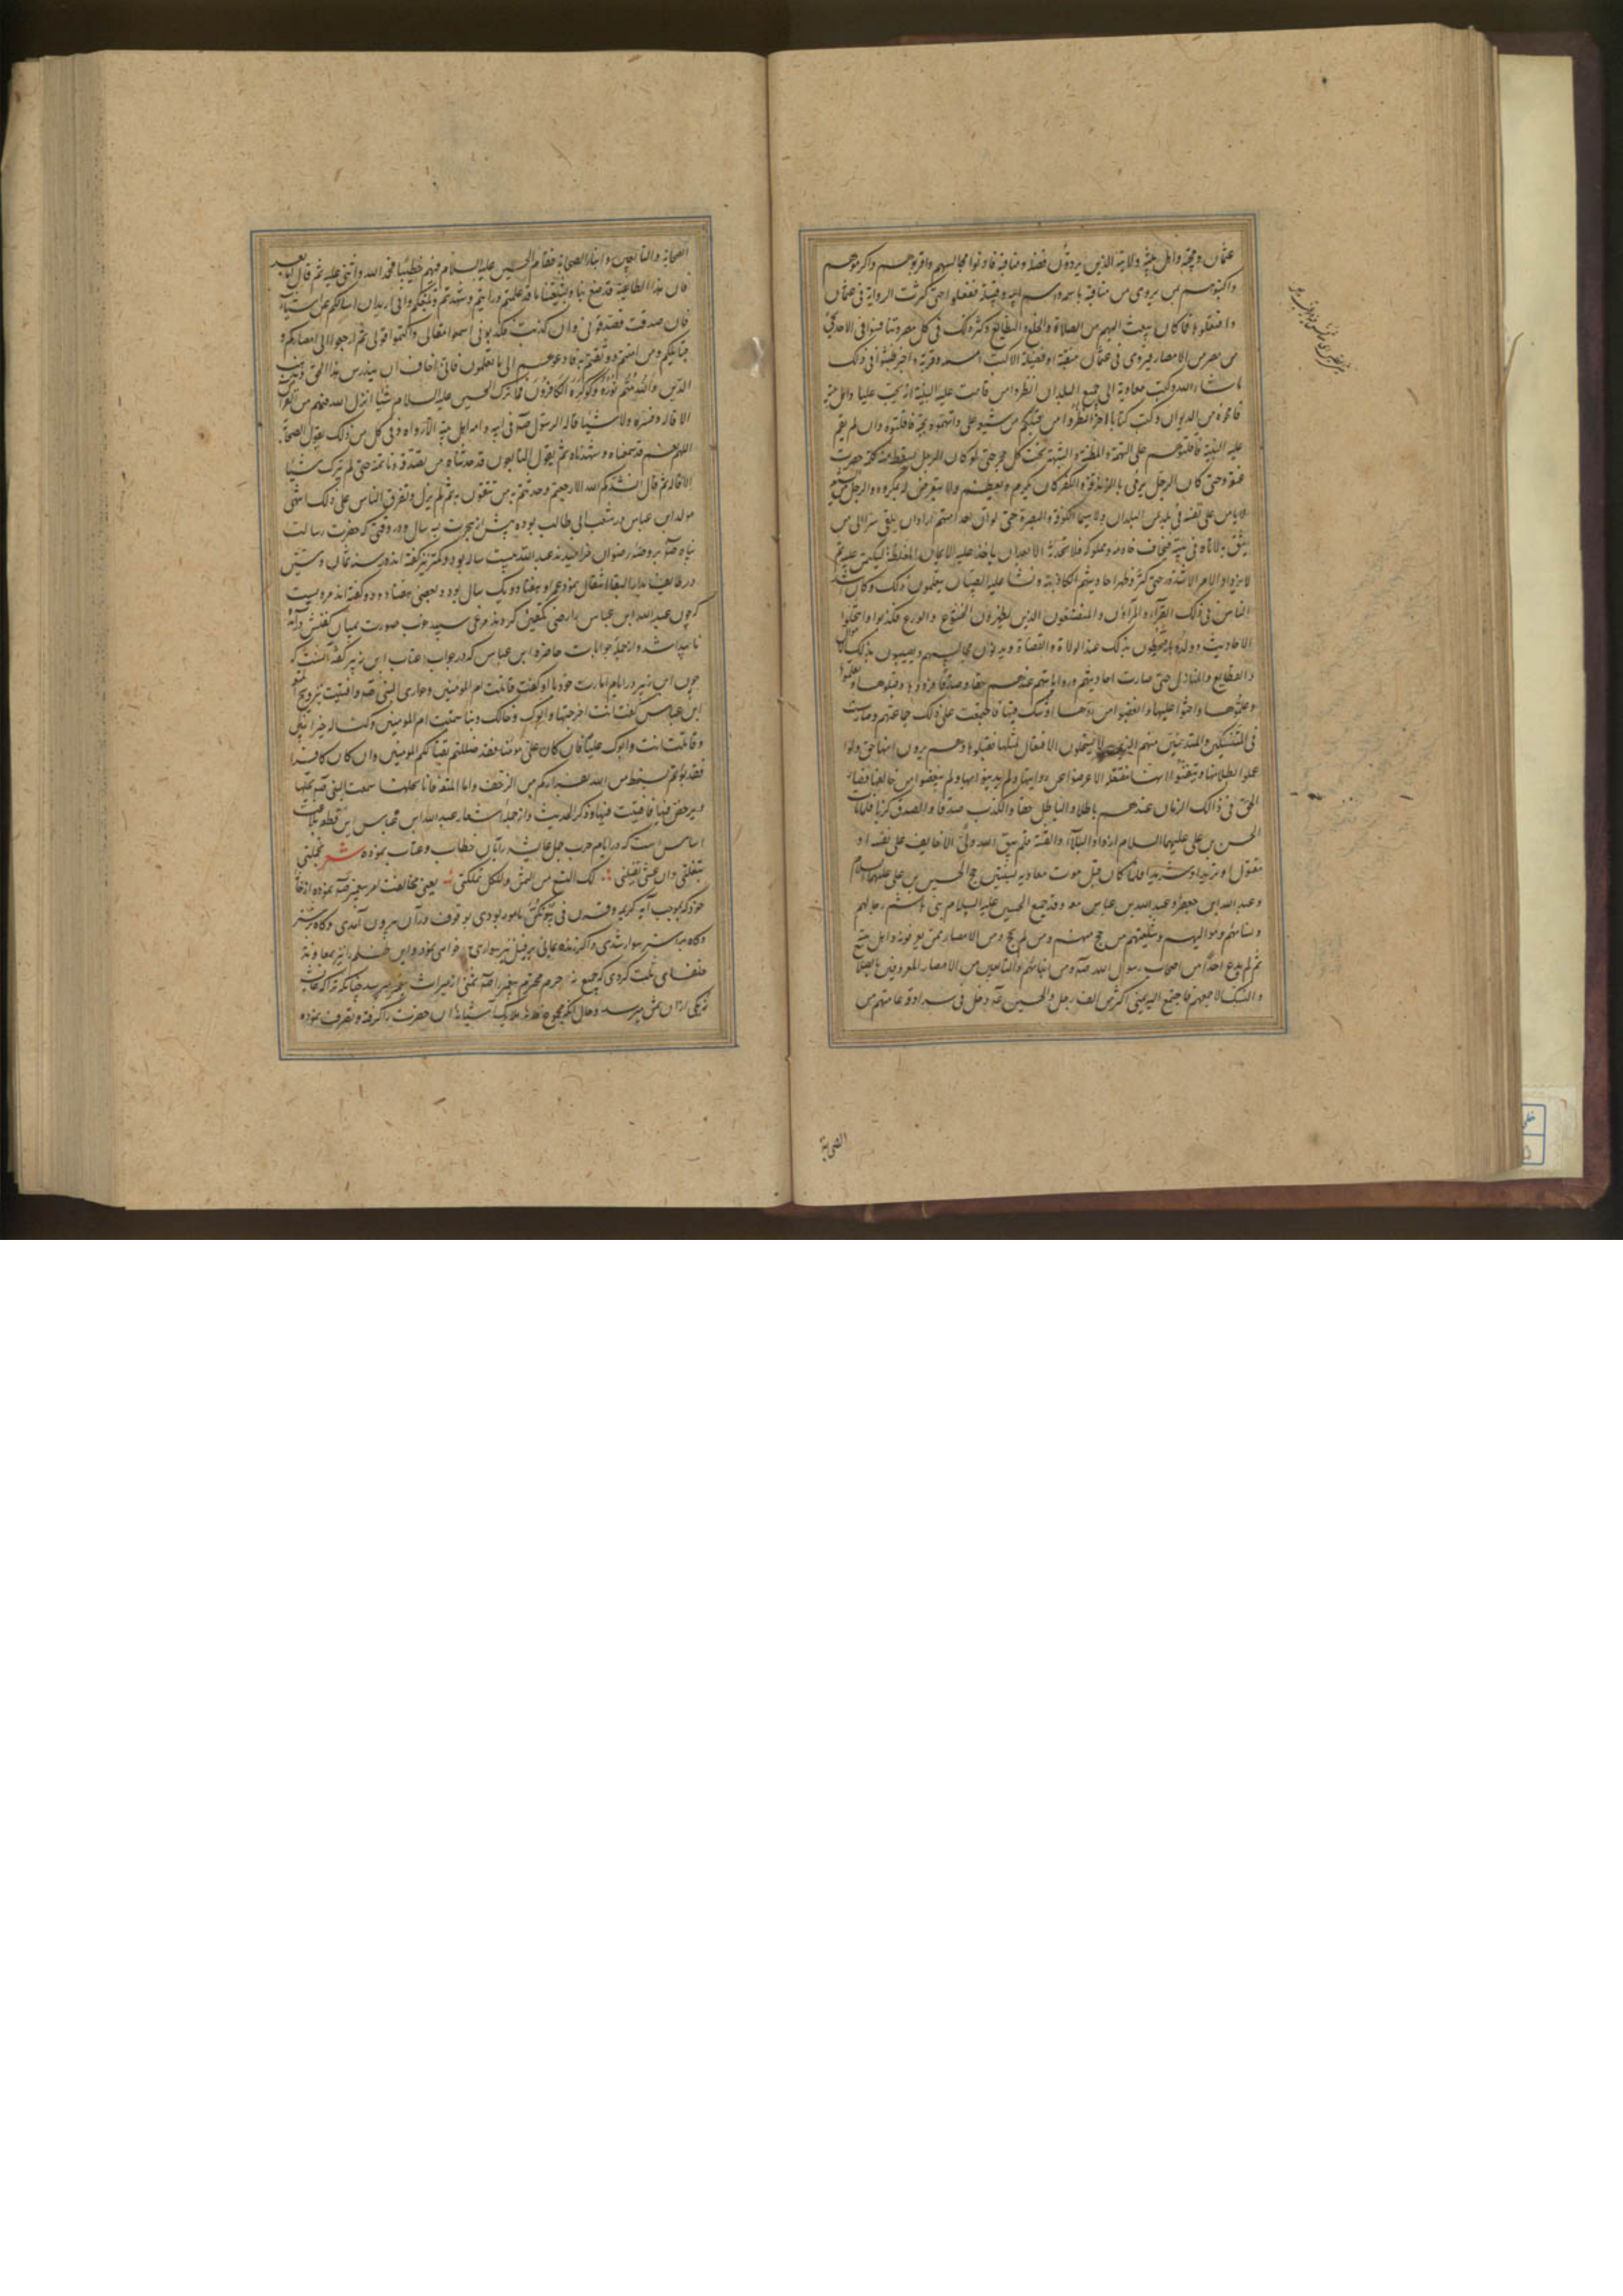 عثمان و محبّه و اهل بیته و ولایته الذین یروون فضله و مناقبه فادنوا مجالسهم و اقربوهم و اکرموهم
و اکتبوا لی بمن یروی من مناقبه باسمه و اسم ابیه و قبیلته ففعلوا حتی کثرت الروایة فی عثمان
و افتعلوها لما کان یبعث الیهم من الصلاة و الخلع و القطایع و کثر ذلک فی کل مصر و تنافسوا فی
من مصر من الامصار فیروی فی عثمان منقبة او فضیلة الا کتب اسمه و قربه و اجیز فلبثوا فی ذلک
ما شاء الله و کتب معاویة الی جمیع البلدان انظروا من قامت علیه البینة انه یحب علیا و اهل بیته
فامحوه من الدیوان و کتب کتابا آخر انظروا من قبلکم من شیعة علی و اتهموه بحبه فاقتلوه و ان لم یقم
علیه البینة فاقتلوهم علی التهمة و الظنة و الشبهة تحت کل حجر حتی لو کان الرجل یسقط منه کلمة ضربت
عنقه و حتی کان الرجل یرمی بالزندقة و الکفر کان یکرم و یعظم و لا یتعرض له بمکروه و الرجل من
لا یامن علی نفسه فی بلد من البلدان و لا سیما الکوفة و البصرة حتی لو ان احدا منهم اراد ان یلقی سرا الی من
یثق به لاتاه فی بیته فیخاف خادمه و مملوکه فلا یحدثه الا بعد ان یاخذ علیه الایمان المغلظة لیکتمن علیه ثم
لا یزداد الامر الا شدة حتی کثر و ظهر احادیثهم الکاذبة و نشا علیه الصبیان یتعلمون ذلک و کان اشد
الناس فی ذلک القرآء و المرآؤن و المتصنعون الذین یظهرون الخشوع و الورع فکذبوا و انتحلوا
الاحادیث و ولدوها فیحظون بذلک عند الولاة و القضاة و یدنون مجالسهم و یصیبون بذلک
و القطایع و المنازل حتی صارت احادیثهم و روایاتهم عندهم حقا و صدقا فرووها و قبلوها و
و علموها و احبوا علیها و ابغضوا من ردها او شک فیها فاجتمعت علی ذلک جماعتهم و صارت
فی المتنسکین و المتدینین منهم الذین لا یستحلون الافتعال لمثلها فقبلوها و هم یرون انها حق و لو
علموا بطلانها و تیقنوا انها مفتعلة لاعرضوا عن روایتها و لم یدینوا بها و لم یبغضوا من خالفها فصار
الحق فی ذالک الزمان عندهم باطلا و الباطل حقا و الکذب صدقا و الصدق کذبا فلما مات
الحسن بن علی علیهما السلام ازداد البلآء و الفتنة فلم یبق لله ولیّ الا خایف علی نفسه او
مقتول او طرید او شرید فلما کان قبل موت معاویة بسنتین حج الحسین بن علی علیهما السلام
و عبد الله ابن جعفر و عبد الله بن عباس معه و قد جمع الحسین علیه السلام بنی هاشم رجالهم
و نسائهم و موالیهم و شیعتهم من حج منهم و من لم یحج و من الامصار ممن یعرفونه و اهل بیته
ثم لم یدع احدا من اصحاب رسول الله صلّه و من ابنائهم و التابعین من الامصار المعروفین بالصلاح
و النسک الا جمعهم فاجتمع الیه بمنی اکثر من الف رجل و الحسین عه دخل فی سرادقه عامتهم من
الصحابة
الصحابة و التابعین و ابناء الصحابة فقام الحسین علیه السلام فیهم خطیبا فحمد الله و اثنی علیه ثم قال اما بعد
فان هذا الطاغیة قد صنع بنا و بشیعتنا ما قد علمتم و رایتم و شهدتم و بلغکم و انی ارید ان اسالکم عن اشیاء
فان صدقت فصدقونی و ان کذبت فکذبونی اسمعوا مقالی و اکتموا قولی ثم ارجعوا الی امصارکم و
قبائلکم و من امنتم و وثقتم به فادعوهم الی ما تعلمون فانی اخاف ان یندرس هذا الحق و یذهب
الدین وَاللهُ مُتِمُّ نُورِهِ وَلَوْ کَرِهَ الکَافِرُونَ فما ترک الحسین علیه السلام شیئا انزل الله فیهم من القرآن
الا قاله و فسره و لا شیئا قاله الرسول صلّه فی ابیه و امه و اهل بیته الا رواه و فی کل من ذلک یقول الصحابة
اللهم نعم قد سمعناه و شهدناه ثم یقول التابعون قد حدثناه من نصدقه و ناتمنه حتی لم یترک شیئا
الا قاله ثم قال انشدکم الله الا رجعتم و حدثتم به من تثقون به ثم لم یزل و تفرق الناس علی ذلک انتهی
مولد ابن عباس در شعب ابی طالب بوده پیش از هجرت به سه سال و در وقتی که حضرت رسالت
پناه صلّه بروضه رضوان خرامیدند عبد الله بیست ساله بود و کمتر نیز گفته اند و در سنه ثمان و ستین
در طائف بدار البقا انتقال نمود و عمر او هفتاد و یک سال بود و بعضی هفتاد و دو گفته اند مرویست
که چون عبد الله ابن عباس را رضی تکفین کردند مرغی سپید خوب صورت بمیان کفنش درآمده
ناپیدا شد و از جمله جوابات حاضره ابن عباس که در جواب عتاب ابن زبیر گفته آنست که
چون ابن زبیر در ایام امارت خود با او گفت قاتلت ام المومنین و حواری النبی صلّه و افتیت بتزویج المتعة
ابن عباس گفت انت اخرجتها و ابوک و خالک و بنا سمیت ام المومنین و کنا لها خیر بنین
و قاتلت انت و ابوک علیا فان کان علی مومنا فقد ضللتم بقتالکم المومنین و ان کان کافرا
فقد بؤتم بسخط من الله بفرارکم من الزحف و اما المتعة فانا نحلها سمعت النبی صلّه یحلها
و یرخص فیها فافتیت فیها و ذکر الحدیث و از جمله اشعار عبد الله ابن عباس این قطعه بلاغت
اساس است که در ایام حرب جمل عایشه را بآن خطاب و عتاب نموده شعر تجملتی
تبغلتی و ان عشتی تفیلتی لک التسع من الثمن و للکل تملکتی یعنی مخالفت امر پیغمبر صلّه نموده از خانه
خود که بموجب آیه کریمه و قرن فی بیوتکن مامور بودی بوقوف در آن بیرون آمدی و گاه شتر
و گاه بر استر سوار شدی و اگر زنده بمانی بر فیل نیز سواری خواهی نمود و این ظلم را نیز بمعاونه
خلفای ثلث کردی که جمیع نه حرم محترم پیغمبر را صلّه ثمنی از میراث پیغمبر میرسد چنانکه ترا که عایشه
نه یکی از آن ثمن میرسد و حال آنکه مجموع خطه ملایک آشیانه آن حضرت را گرفته و تصرف نموده